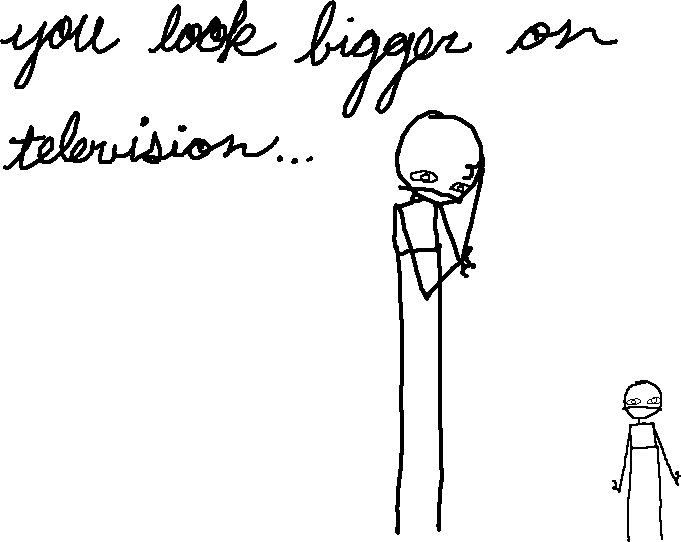 you look bigger on
television...